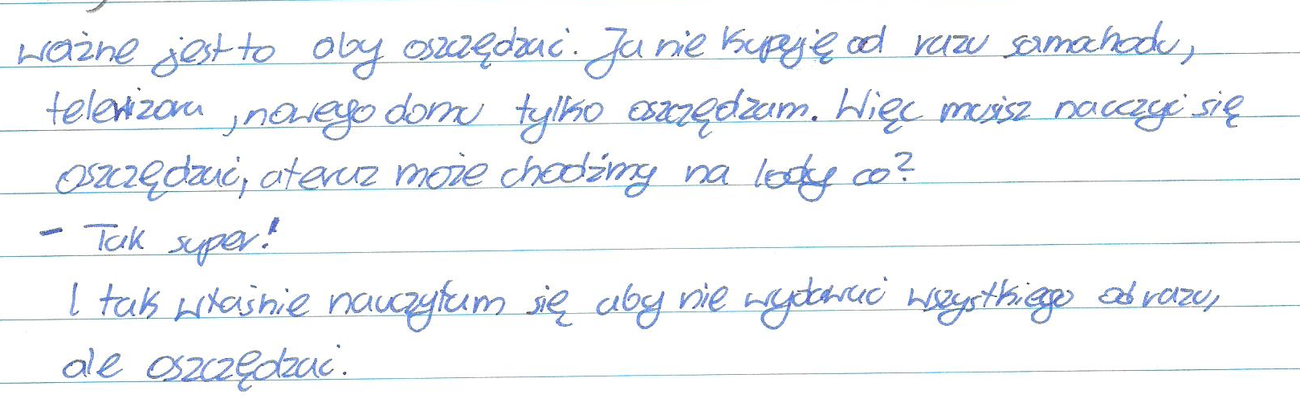 ważne jest to aby oszczędzać. Ja nie kupuję od razu samochodu,
telewizora, nowego domu tylko oszczędzam. Więc musisz nauczyć się
oszczędzać, a teraz może chodźmy na lody co?
- Tak super!
I tak właśnie nauczyłam się aby nie wydawać wszystkiego od razu,
ale oszczędzać.